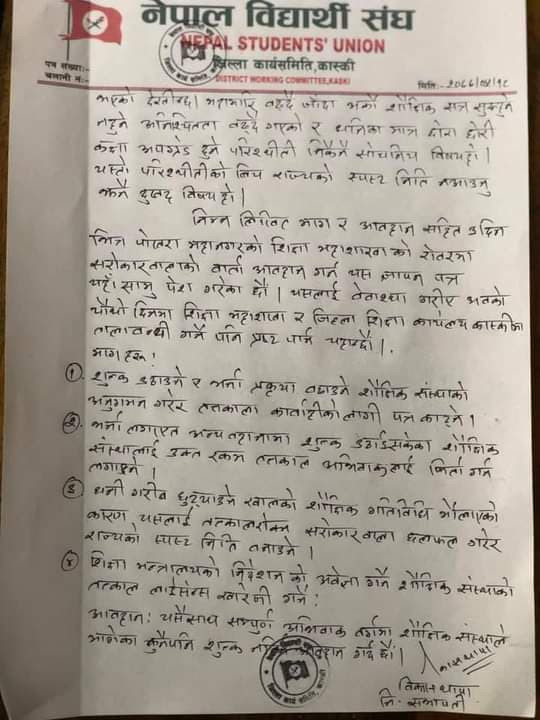 नेपाल विद्यार्थी संघ
NEPAL STUDENTS' UNION
जिल्ला कार्यसमिति, कास्की
DISTRICT WORKING COMMITTEE, KASKI
पत्र संख्याः-
चलानी नंः-
मितिः-
भएको देखिन्छ। महामारि बढ्दै जाँदा भर्ना शैक्षिक सत्र सुरु हुने
नहुने अनिश्चितता बढ्दै गएको र धनिका मात्र छोरा छोरी
कक्षा अपग्रेड हुने परिस्थीती निकै सोचनिय विषय हो।
यस्तो परिस्थीतीको बिच राज्यको स्पस्ट निति नआउनु
झनै दुखद विषय हो।
निम्न लिखित माग र आवहान सहित ३ दिन
भित्र पोखरा महानगरको शिक्षा महाशाखा को रोवरमा
सरोकारवालाको वार्ता आवहान गर्न यस ज्ञापन पत्र
यहाँ सामु पेश गरेका छौं। यसलाई वेवास्था गरीए अबको
चौथो दिनमा शिक्षा महाशाखा र जिल्ला शिक्षा कार्यलय कास्कीमा
तालाबन्दी गर्ने पनि प्रष्ट पार्न चहान्छौं।
माग हरु:
① शुल्क उठाउने र भर्ना प्रकृया बढाउने शैक्षिक संस्थाको
अनुगमन गरेर तत्काल कार्वाहीको लागी पत्र काट्ने।
②. भर्ना लगाएत अन्य वहानामा शुल्क उठाईसकेका शैक्षिक
संस्थालाई उक्त रकम तत्काल अभिभावकलाई फिर्ता गर्न
लगाउने।
③ धनी गरीब छुट्याउने खालको शैक्षिक गतिविधि मौलाएको
कारण यसलाई तत्काल रोक्न सरोकारवाला छलफल गरेर
राज्यको स्पस्ट निति बनाउने।
④ शिक्षा मन्त्रालयको निर्देशन को अवेज्ञा गर्ने शैक्षिक संस्थाको
तत्काल लाईसेन्स खारेजी गर्ने:
आवहान: यसैसाथ सम्पुर्ण अभिभावक वर्गमा शैक्षिक संस्थाले
मागेका कुनैपनि शुल्क आवहान गर्दछौं।
थापा
नि. सभापती